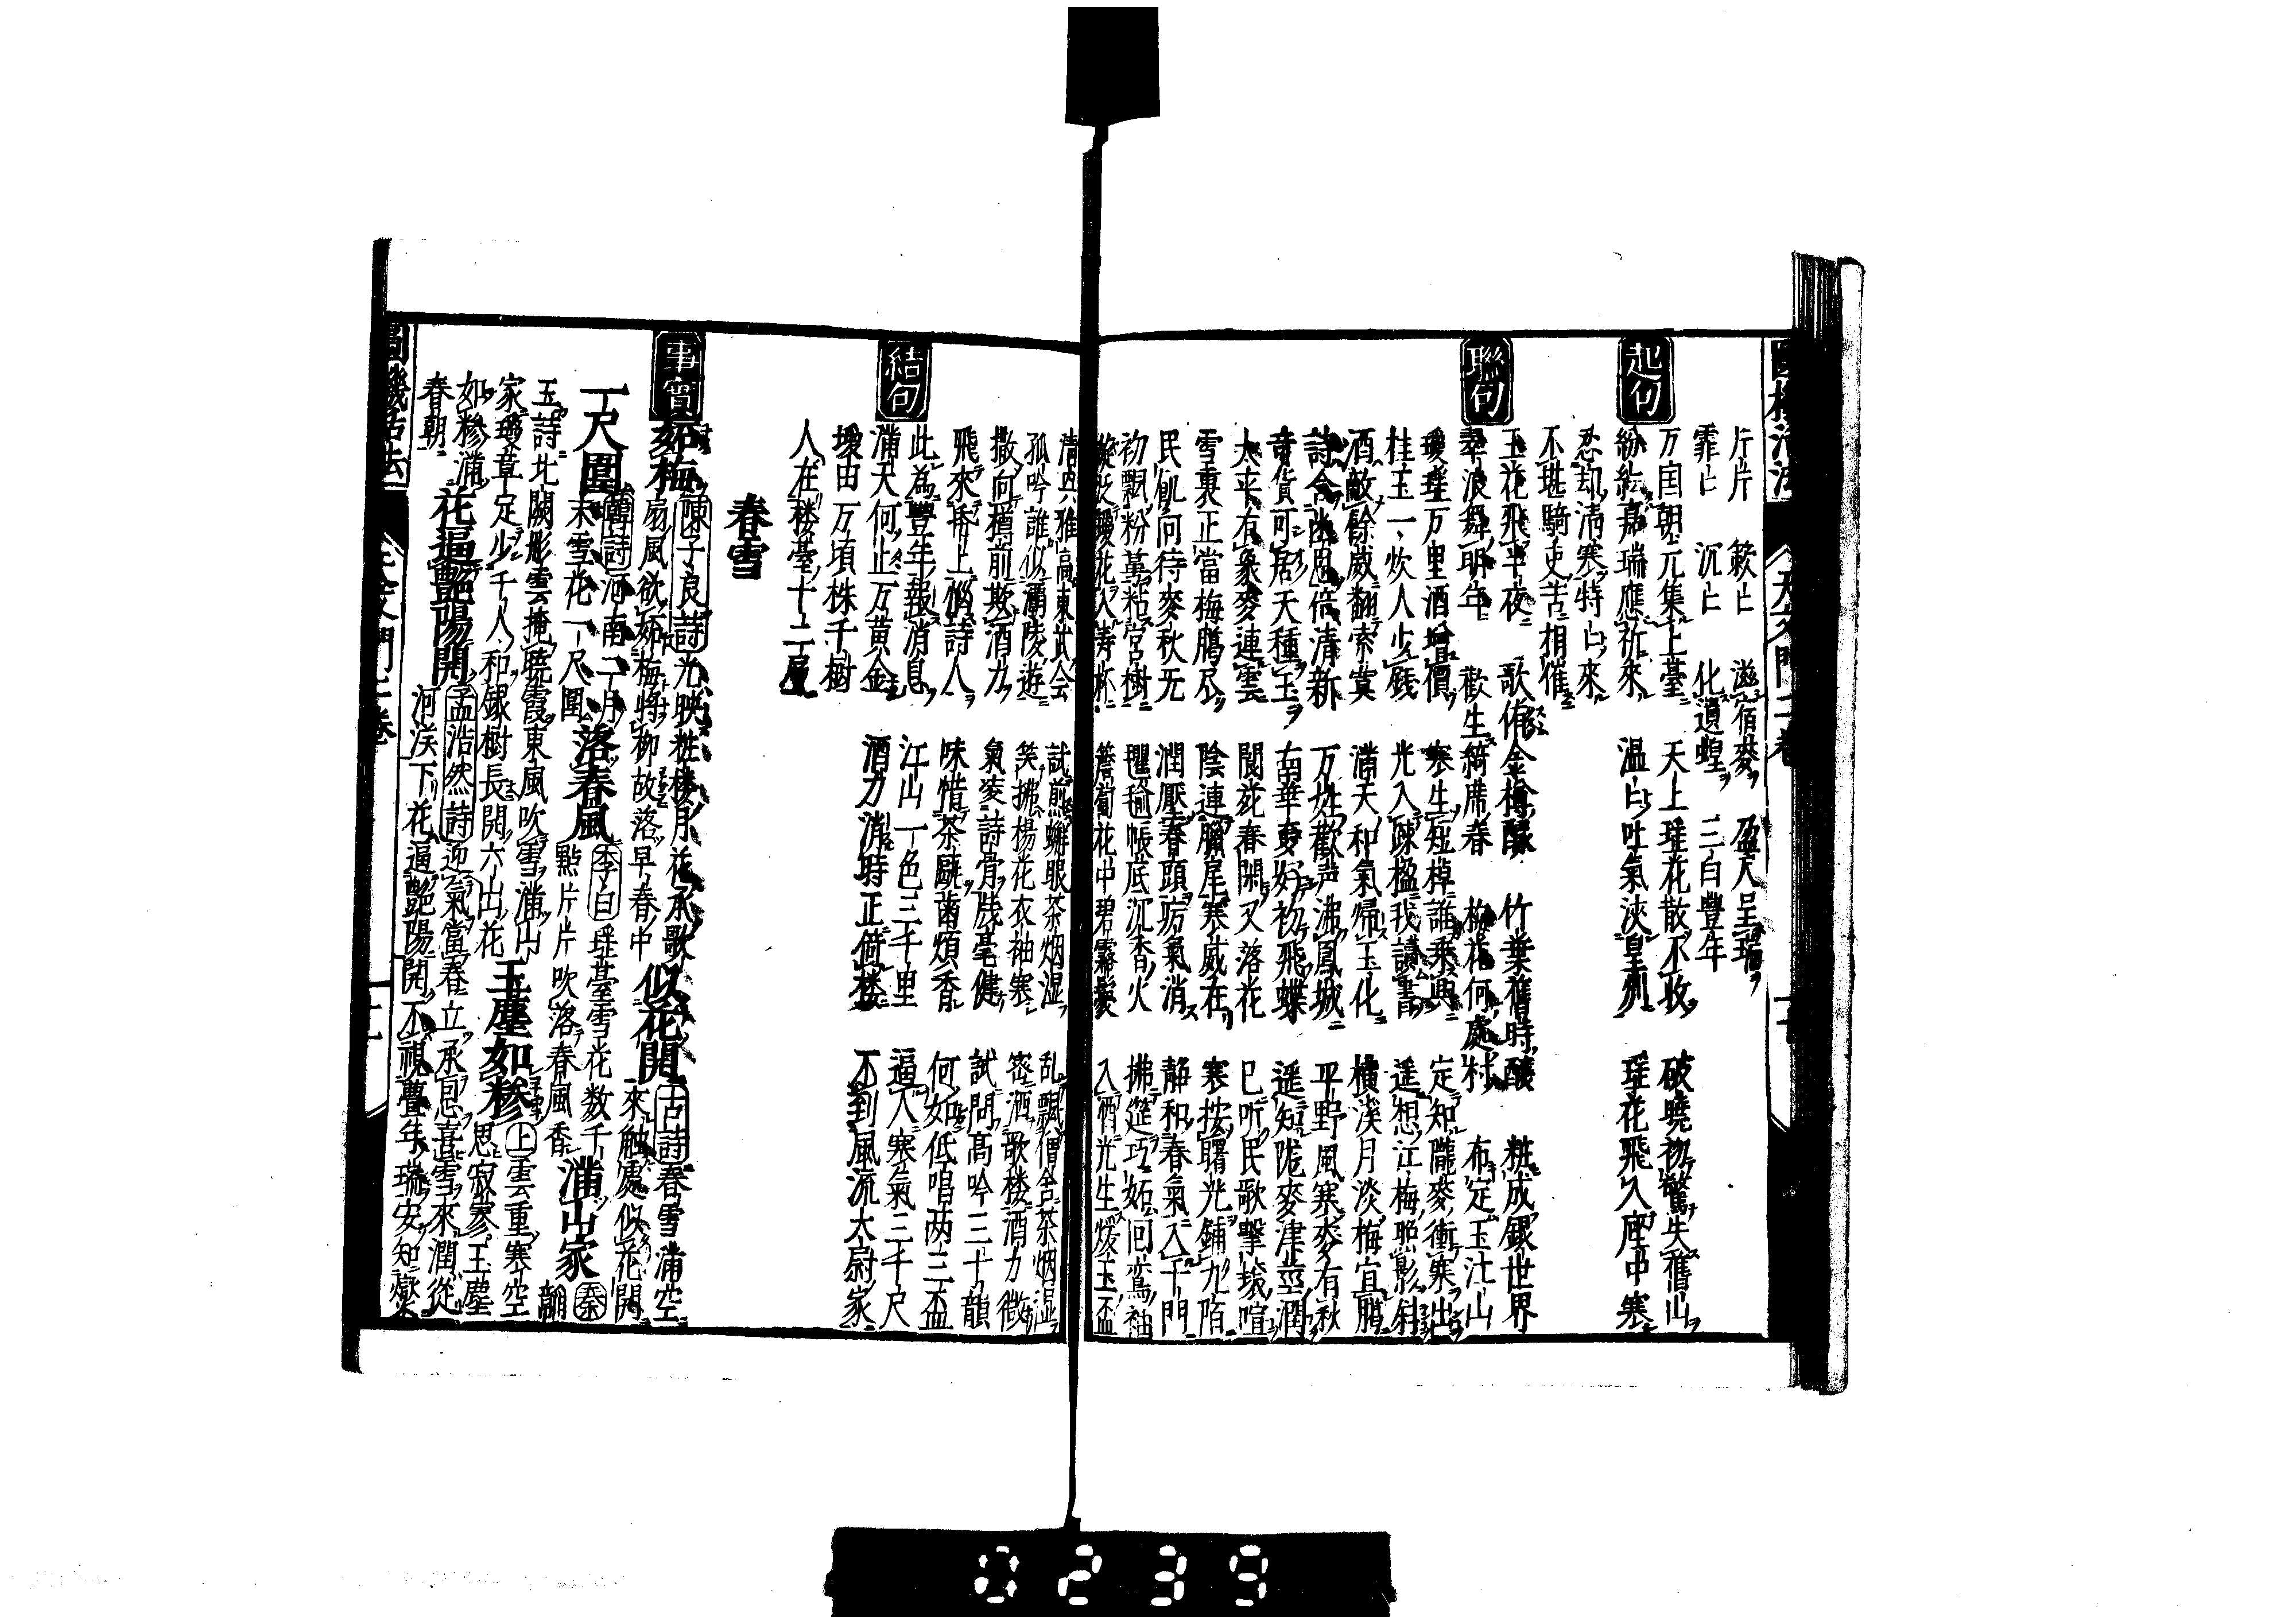 片片 簌〻 滋宿麥 盈尺呈瑞
霏〻 沉〻 化遺蝗 三白豐年
起句
万国朝元集上臺 天上瑶花散不收 破曉初驚失舊山
紛紜嘉瑞應祈來 温〻吐氣浹皇州 瑶花飛入座中寒
忽却清寒特〻來
不堪騎吏苦相催
聯句
玉花飛半夜 歌侑金樽醁 竹葉舊時釀 粧成銀世界
翠浪舞明年 歡生綺席春 梅花何處村 布定玉江山
瓊瑶万里酒增價 寒生短棹誰乘興 定知隴麥衝寒出
桂玉一炊人少錢 光入疎櫺我讀書 遥想江梅照影斜
酒敵餘威翻索寞 滿天和氣帰玉化 橫溪月淡梅宜臘
詩含幽思倍清新 万姓歡声沸鳳城 平野風寒麥有秋
奇貨可居天種玉 南華夢好初飛蝶 遥知隴麥津莖潤
太平有象麥連雲 閬苑春閑又落花 已听民歌擊壤喧
雪裏正當梅臘尽 陰連臘尾寒威在 寒按曙光鋪九陌
民飢何待麥秋无 潤壓春頭疠氣消 静和春氣入千門
初飄粉蕚粘宮樹 氍毹帳底沉香火 拂筵巧妬回鸞袖
簷蔔花中碧霧髮 入酒光生煖玉盃
清興雅高東武会 試煎蟹眼茶烟湿 乱飄僧舎茶烟湿
孤吟誰似灞陵遊 笑拂楊花衣袖寒 密洒歌楼酒力微
結句
撒向樽前欺酒力 氣凌詩骨牋毫健 試問高吟三十韻
飛來帋上惱詩人 味惜茶甌齒煩香 何如低唱两三盃
此為豐年報消息 江山一色三千里 逼人寒氣三千尺
滿天何止万黄金 酒力消時正倚楼 不到風流太尉家
壊田万頃株千樹
人在楼臺十二層
春雪
事實
妬梅 陳子良詩 光映粧楼月花承歌扇風欲妬梅將柳故落早春中 似花開 古詩 春雪滿空來触處似花開
一尺圍 韓詩 河南二月末雪花一尺圍 落春風 李白 瑶臺雪花数千點片片吹落春風香 滿山家 秦韜玉詩北闕彤雲掩曉霞東風吹雪滿山家瓊章定少千人和銀樹長開六出花 玉塵如糝 上 雲重寒空思寂寥玉塵如糝滿春朝
花逼艶陽開 孟浩然詩 迎氣當春立承恩喜雪來潤從河漢下花逼艶陽開不覩豐年瑞安知燮
0239